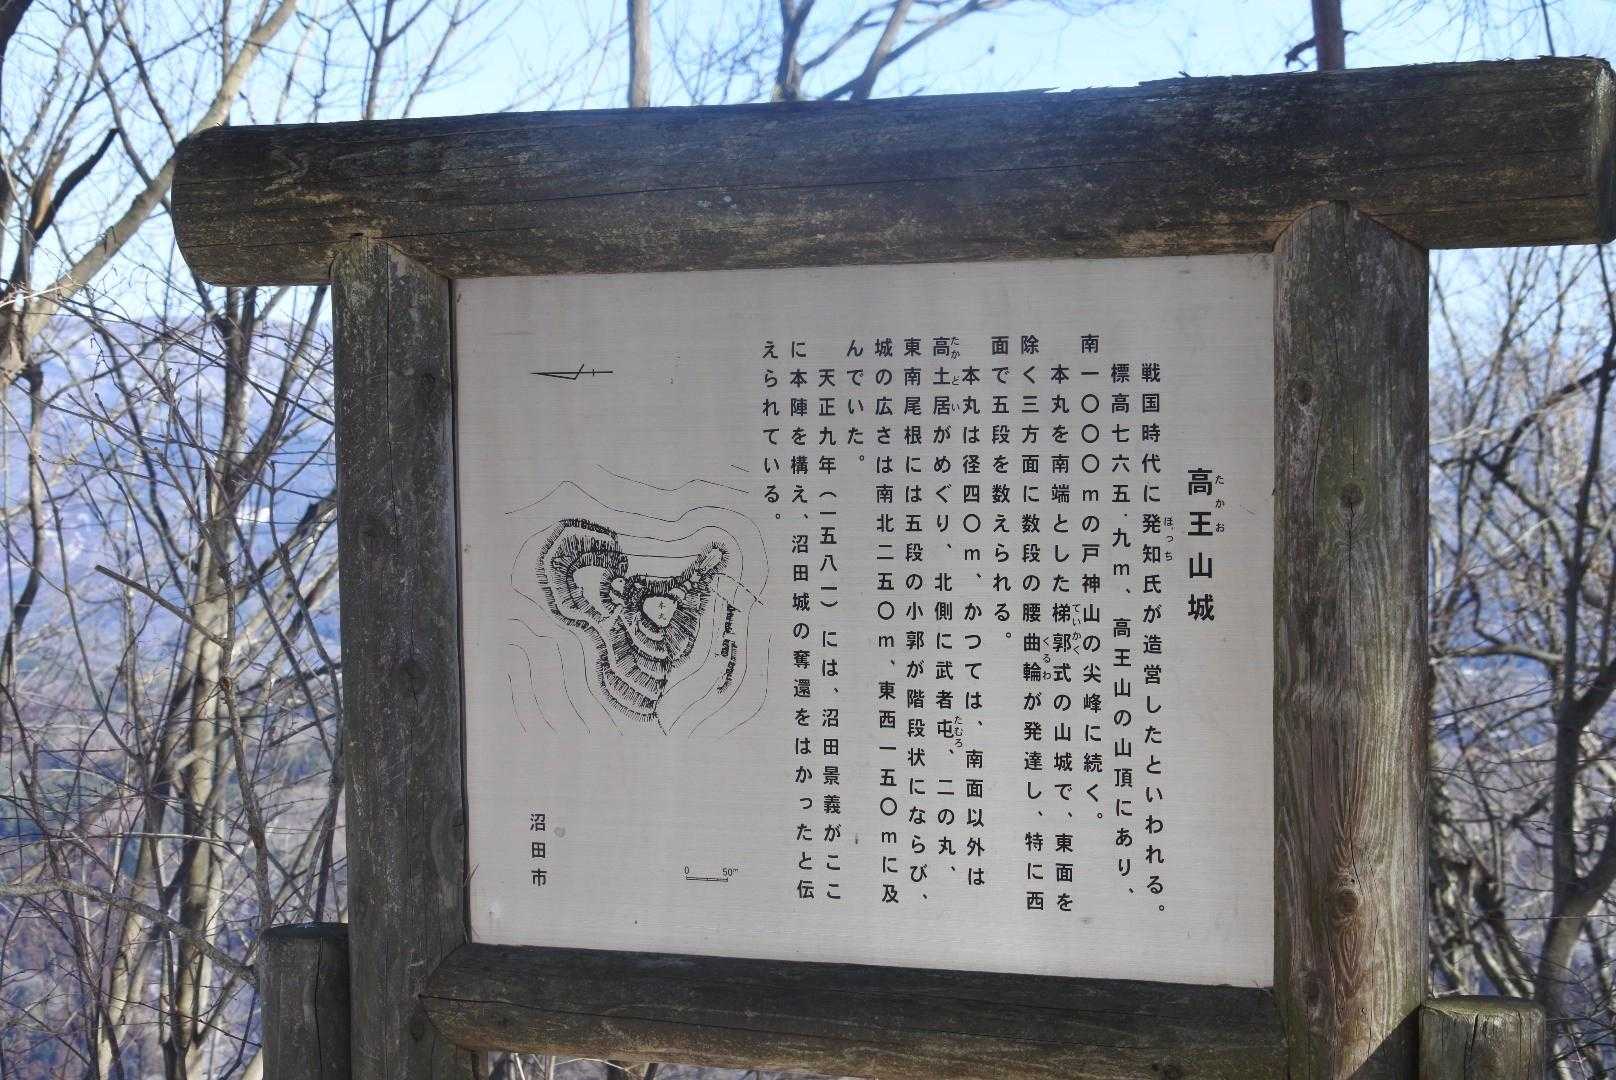 高王山城
たかお
戦国時代に発知氏が造営したといわれる。
ほっち
標高七六五・九m、高王山の山頂にあり、
南一〇〇〇mの戸神山の尖峰に続く。
本丸を南端とした梯郭式の山城で、東面を
ていかく
除く三方面に数段の腰曲輪が発達し、特に西
くるわ
面で五段を数えられる。
本丸は径四〇m、かつては、南面以外は
高土居がめぐり、北側に武者屯、二の丸、
たかどい
たむろ
東南尾根には五段の小郭が階段状にならび、
城の広さは南北二五〇m、東西一五〇mに及
んでいた。
天正九年(一五八一)には、沼田景義がここ
に本陣を構え、沼田城の奪還をはかったと伝
えられている。
本丸
0 50m
沼田市